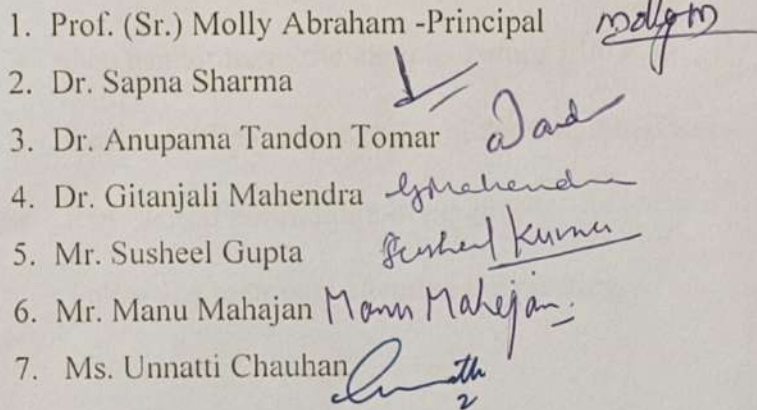 1. Prof. (Sr.) Molly Abraham -Principal
2. Dr. Sapna Sharma
3. Dr. Anupama Tandon Tomar
4. Dr. Gitanjali Mahendra GMahendra
5. Mr. Susheel Gupta Susheel Kumar
6. Mr. Manu Mahajan Manu Mahajan.
7. Ms. Unnatti Chauhan